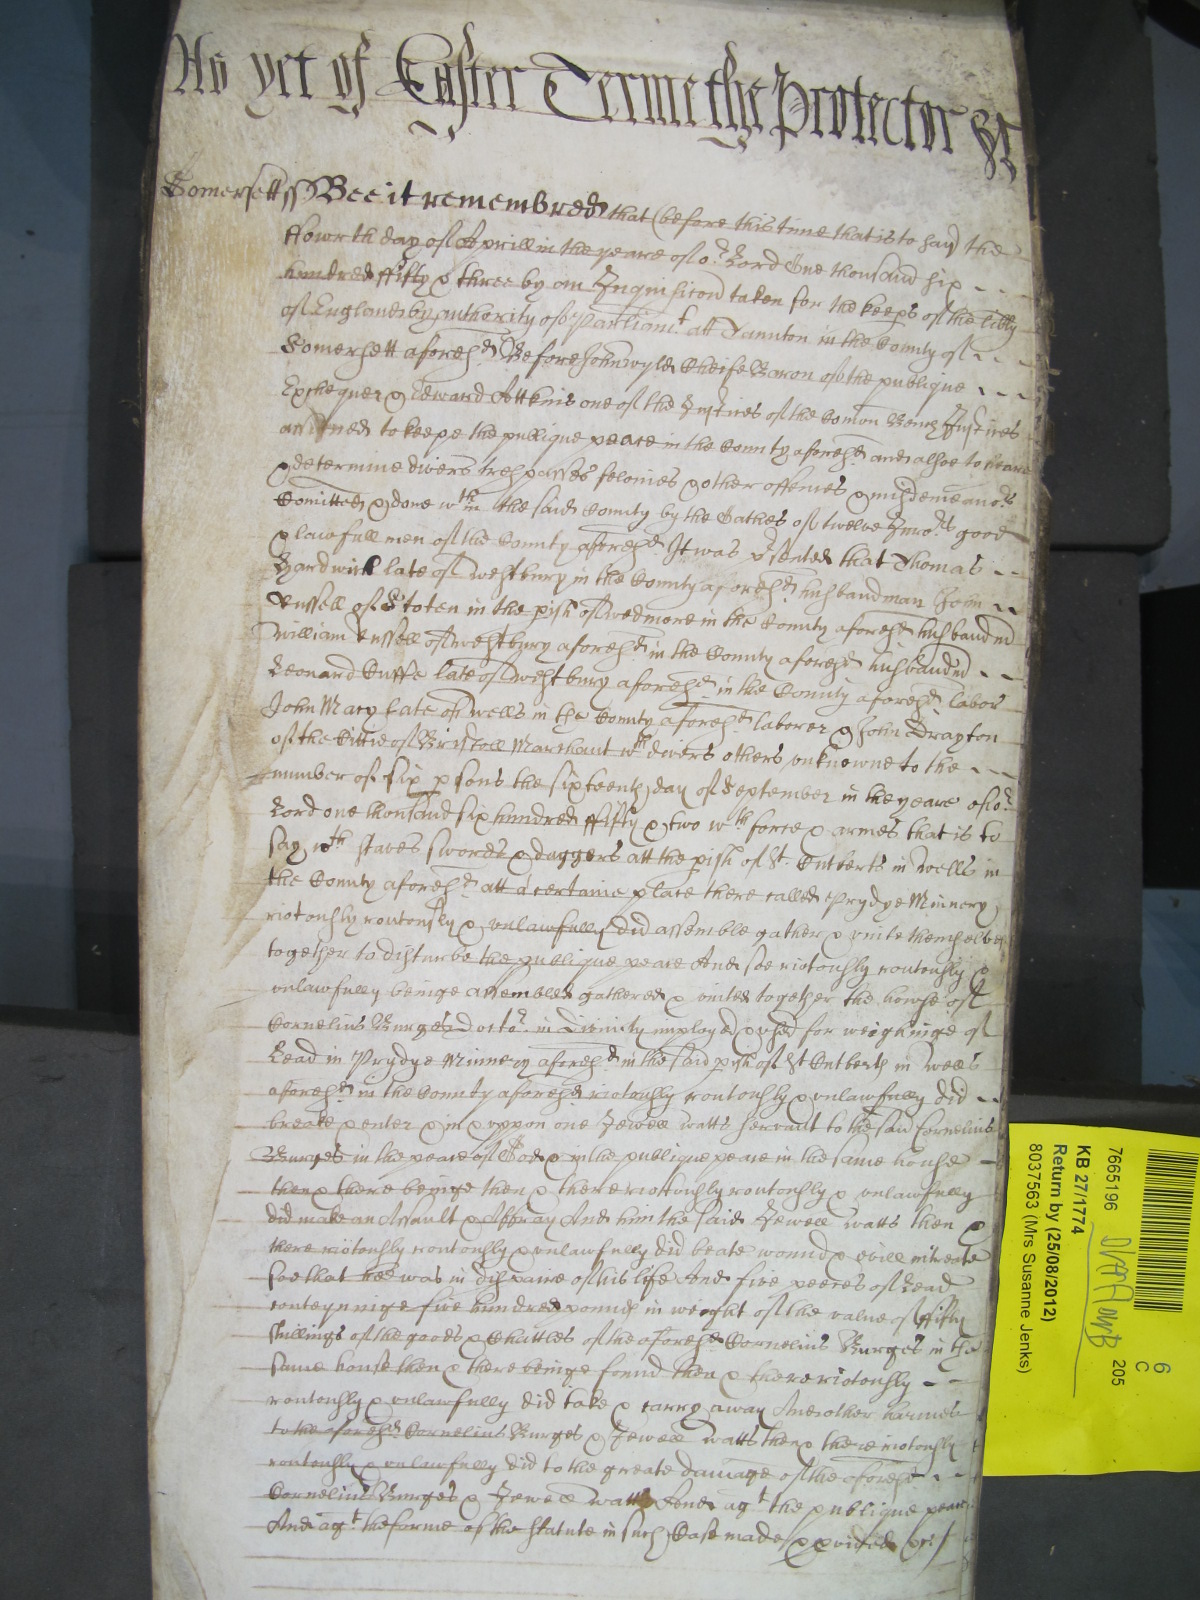 As yet of Easter Terme the Protector &c
Somersett ss Bee it remembred that before this time that is to say the
ffowrth day of Aprill in the yeare of or Lord One thousand six
hundred ffifty & three by an Inquisicon taken for the keeps of the libty
of England by authority of Parliamt att Taunton in the County of
Somersett aforesd Before John wylde Cheife Baron of the publique
Exchequer & Edward Attkins one of the Justices of the Comon Bench Justices
assigned to keepe the publique peace in the County aforesd and alsoe to heare
& determine divers trespasses felonies & other offences & misdemeanors
Comitted & done wthin the said County by the Oathes of twelve Jurors good
& lawfull men of the County aforesd It was psented that Thomas
Hardwich late of westbury in the County aforesd husbandman John
Russell of Stoten in the pish of wedmore in the County aforesd husbandm
William Russell of westbury aforesd in the County aforesd husbandm
Leonard Cuffe late of westbury aforesd in the County aforesd labor
John Mary late of wells in the County aforesd laborer & John Drayton
of the Cittie of Bristoll Marchant wth divers others unknowne to the
number of six psons the sixteenth day of September in the yeare of or
Lord one thousand six hundred ffifty & two wth force & armes that is to
say wth staves swords & daggers att the pish of St Cutberts in wells in
the County aforesd att a certaine place there called Prydye Minnery
riotously routously & unlawfully did assemble gather & unite themselves
together to disturbe the publique peace And soe riotously routously &
unlawfully beinge assembled gathered & united together the howse of
Cornelius Burges Doctor in Divinity imployed & used for weighinge of
Lead in Prydye Minnery aforesd in the said pish of St Cutberts in wells
aforesd in the County aforesd riotously routously & unlawfully did
breake & enter & in & uppon one Jewell watts servant to the said Cornelius
Burges in the peace of God & in the publique peace in the same house
then & there beinge then & there riotously routously & unlawfully
did make an Assault & Affray And him the said Jewell watts then &
there riotously routously & unlawfully did beate wound & evill intreate
soe that hee was in dispaire of his life And five peeces of Lead
conteyninge five hundred pounds in weight of the value of ffifty
shillings of the goods & Chattles of the aforesd Cornelius Burges in the
same house then & there beinge found then & there riotously
routously & unlawfully did take & carry away And other harmes
to the aforesd Cornelius Burges & Jewell watts then & there riotously
routously & unlawfully did to the great damage of the aforesd
Cornelius Burges & Jewell watts And agt the publique peace
And agt the forme of the Statute in such Case made & pvided &c
7665196
205
KB 27/1774
6
C
Return by (25/08/2012)
8037563 (Mrs Susanne Jenks)